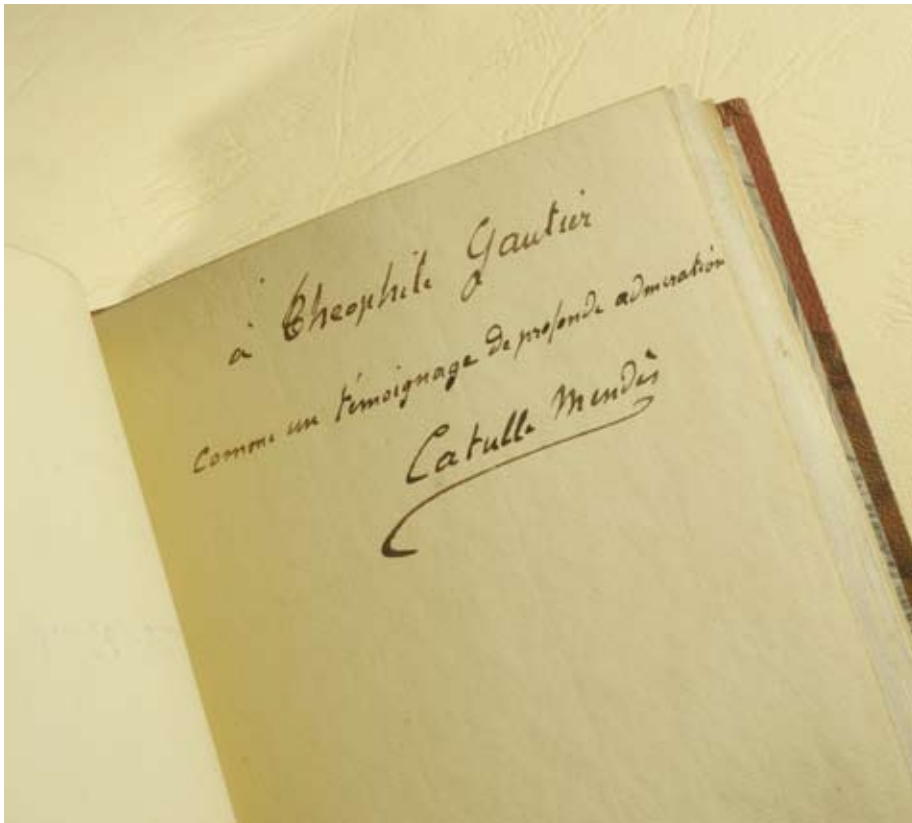 à Theophile Gautier
comme un témoignage de profonde admiration
Catulle Mendès